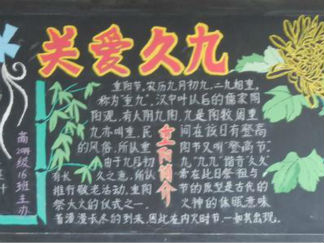 关爱久九
重阳节，农历九月初九，二九相重，
称为"重九"，汉中叶以后的儒家阴
阳观，有六阴九阳，九是阳数，固重
九亦叫重
民间在该日有登高
的风俗，所以重
阳节又叫"登高节"
由于九月初
九"九九"谐音久久
有长久之意，所以
常在此日祭祖与
推行敬老活动，重阳
节的原型是古代的
祭大火的仪式之一
火神的休眠意味
着漫漫长冬的到来，因此在内火时节，一如其出现，
重阳简介
高
级16班主办